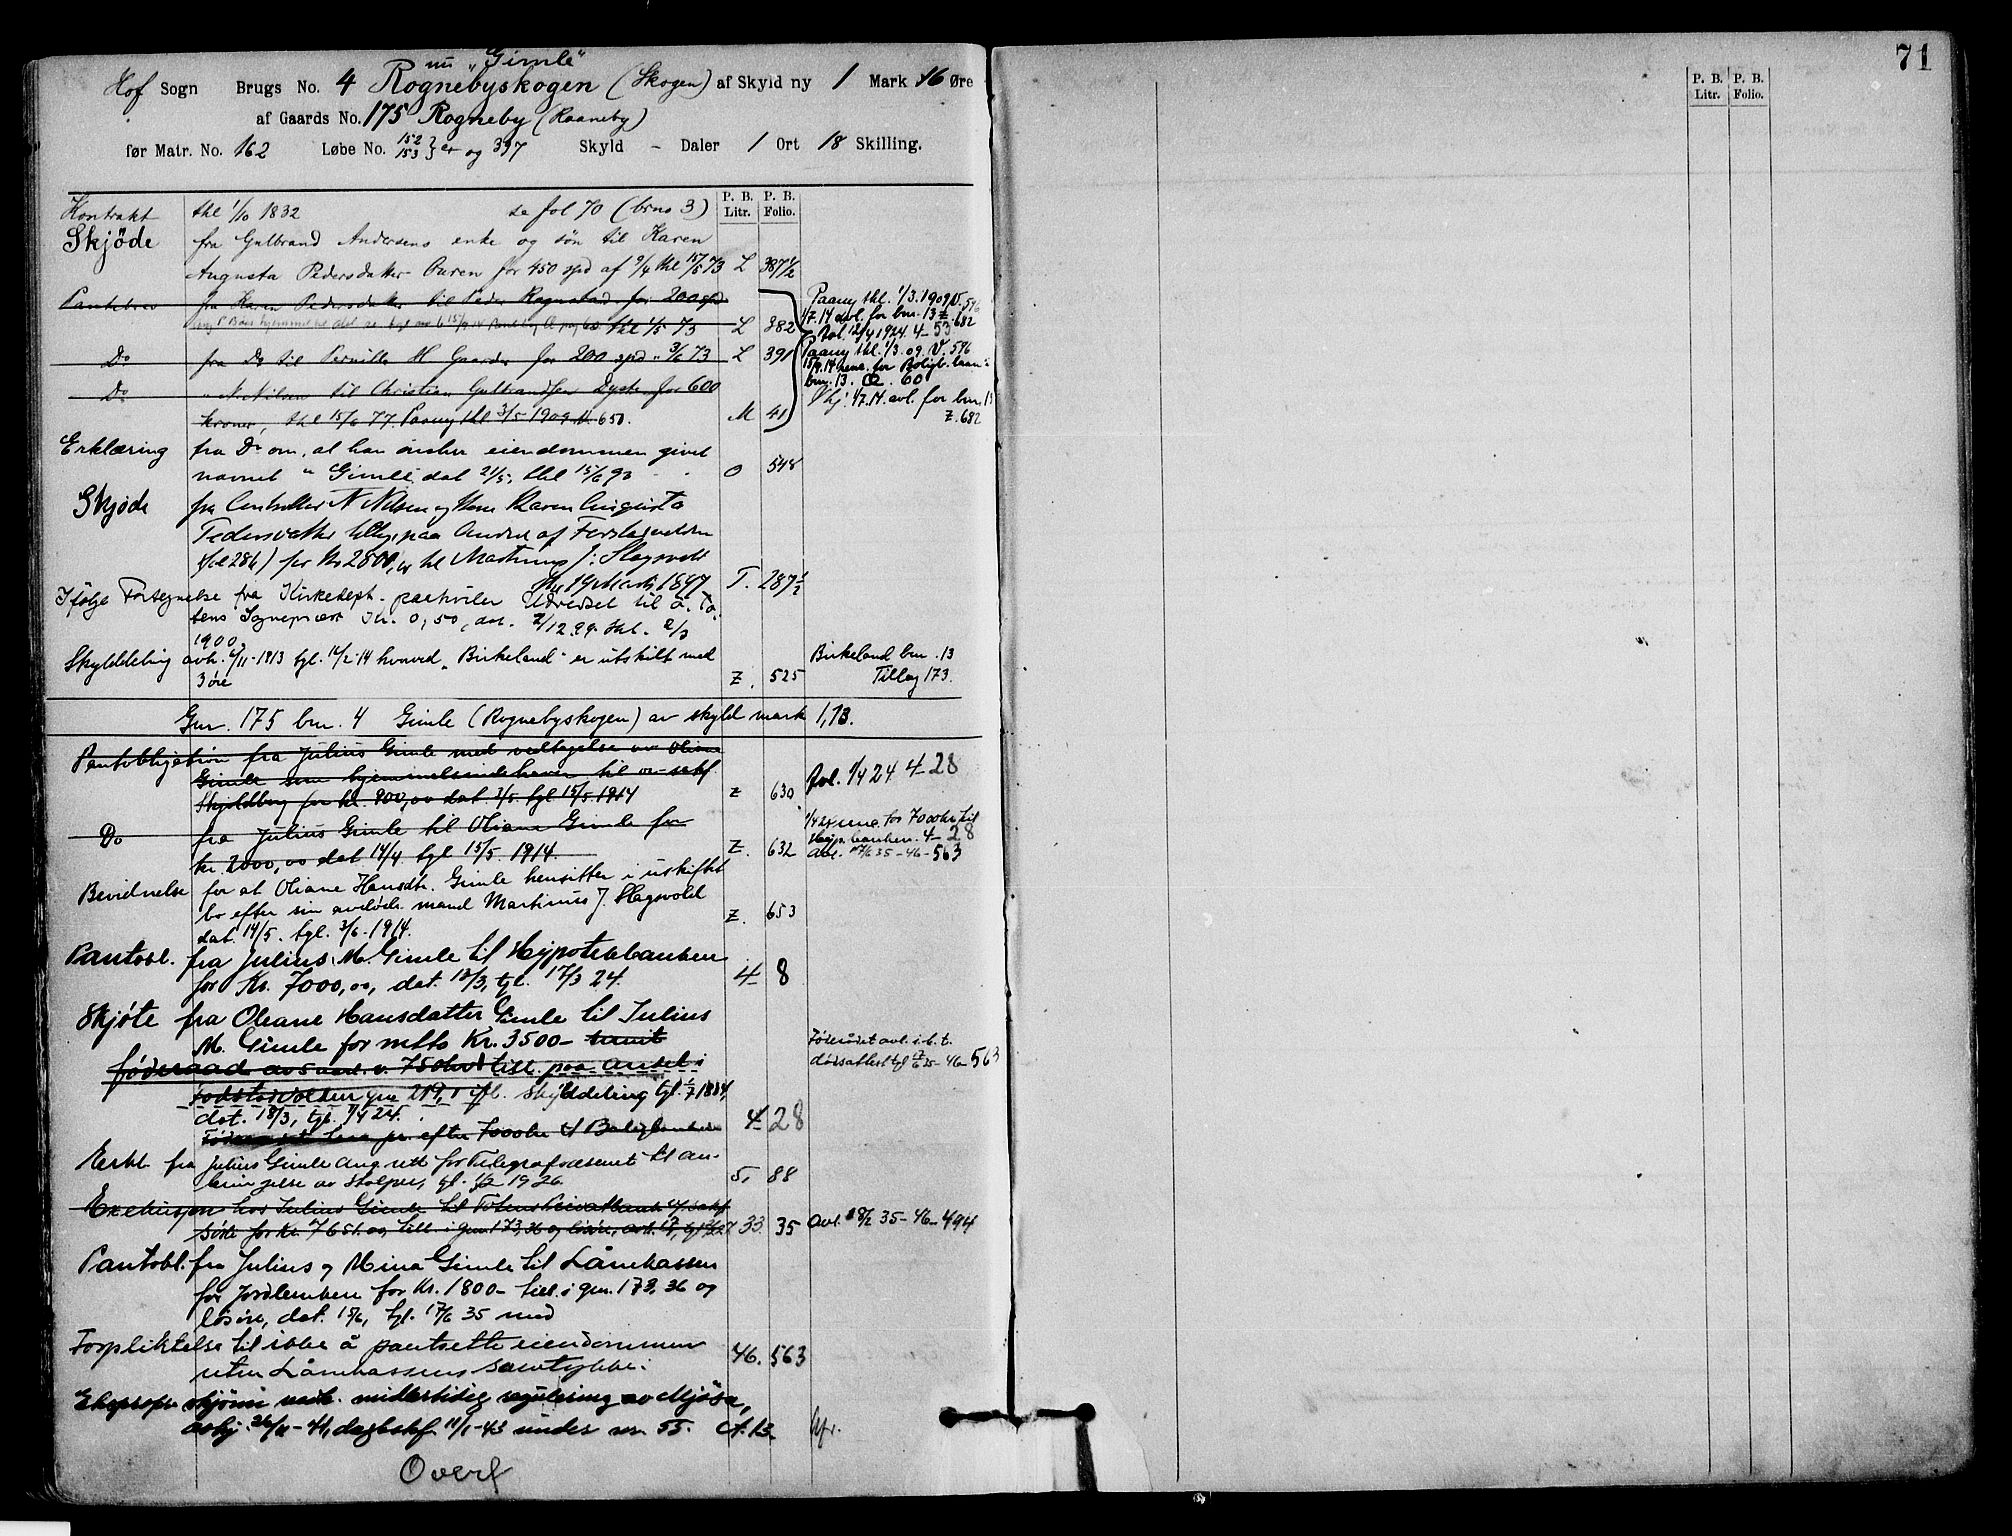 nu "Gimle"
Hof Sogn Brugs No. 4 Rognebyskogen (Skogen) af Skyld ny 1 Mark 16 Øre
af Gaards No. 175 Rogneby (Raaneby)
før Matr. No. 162 Løbe No. 152 153 } er og 337 Skyld - Daler 1 Ort 18 Skilling.
P. B. Litr. P. B. Folio.
Kontrakt thl 1/10 1832 se fol 70 (brno 3)
Skjöde fra Gulbrand Andersens enke og søn til Karen
Augusta Pedersdatter Ouren for 450 spd af 9/4 thl 15/5 73 L 387 1/2
Pantebrev fra Karen Pedersdatter til Peder Rognstad for 200 spd
thl 1/5 73 L 382
Do fra Do til Pernille M Gaarder for 200 spd " 3/6 73 L 391
Do " N. Nilsen til Christian Gulbrandsen Dyste for 600
kroner, thl 15/6 77. Paany thl 3/5 1909 650. M 41
Paany thl. 1/3.1909 V. 596
17.14 avl. for bnr. 13 Z. 682
Avl. 12/4 1924 4-53
Paany thl. 1/3.09. V. 596
bnr. 13. 60
avl. for bnr. 13
Z. 682
Erklæring fra Do om, at han önsker eiendommen givet
navnet "Gimle" dat 21/5, thl 15/6 93 O 548
Skjøde fra N Nilsen og Kone Karen Augusta
Pedersdatter paa Andel af
fol 286) for Kr 2800, til Martinus J. Slagsvold
thl 19 Marts 1897 T. 287 1/2
Ifølge Fortegnelse fra Kirkedept. paahviler Udredsel til ö. To-
tens Sogneprest Kr. 0,50, dat. 2/12 99 thl. 2/3
1900
Skylddeling avh. 6/11-1913 tgl. 14/2-14 hvorved "Birkeland" er utskilt med
3 öre Z. 525
Birkeland bnr. 13
Tillæg 173.
Gnr. 175 bnr. 4 Gimle (Rognebyskogen) av skyld mark 1,13.
Pantobligation fra Julius Gimle med vedtagelse av Oliane
Gimle som hjemmelsindehaver til o.r.sakf.
Skjoldborg for kr. 900,00 dat 7/5. tgl 15/5. 1914 Z 630
Avl. 1/4 24 4-28
Do fra Julius Gimle til Oliane Gimle for
kr. 2000,00 dat 14/4 tgl 15/5. 1914. Z. 632
for 7000 kr til
Hyp. banken. 4-28
Avl. 17/6 35-46-563
Bevidnelse for at Oliane Hansdtr. Gimle hensitter i uskiftet
bo efter sin avdöde mand Martinus J. Slagsvold
dat. 14/5. tgl. 3/6-1914. Z. 653
Pantobl. fra Julius M. Gimle til Hypotekbanken
for Kr. 7000,00, dat. 13/3, tgl. 17/3 24. 4 8
Skjöte fra Oleane Hansdatter Gimle til Julius
M. Gimle for netto Kr. 3500-
föderaad av 5 aarl. v. 750 kr. till. paa andel i
gnr 219,1 ifl. skylddeling tgl. 1/7 1884,
dat. 18/3, tgl. 1/4 24. 4 28
efter 7000 kr til Boligbanken
Föderådet avl. i h. t.
dödsattest tgl 17/6 35-46-563
Erkl. fra Julius Gimle ang. rett for Telegrafvæsenet til an-
bringelse av stolper, tgl. 1/2 1926 5, 88
Exekusjon hos Julius Gimle til Totens Privatbank v/ sakf.
for kr. 765.00, till. i gnr 173,36 og lösöre, 33. 35
Avl. 18/2 35-46-494
Pantobl. fra Julius og Mina Gimle til Lånekassen
for Jordbrukere for Kr. 1800- till. i gnr. 173,36 og
lösöre, dat. 15/6, tgl. 17/6 35 med
Forpliktelse til ikke å pantsette eiendommen
uten Lånekassens samtykke. 46. 563
Ekspropr. skjönn vedr. midlertidig regulering av Mjösa,
avhj. 26/11-41, dagbokf. 11/1-43 under nr. 55. A. 13
Overf
71
P. B. Litr. P. B. Folio.